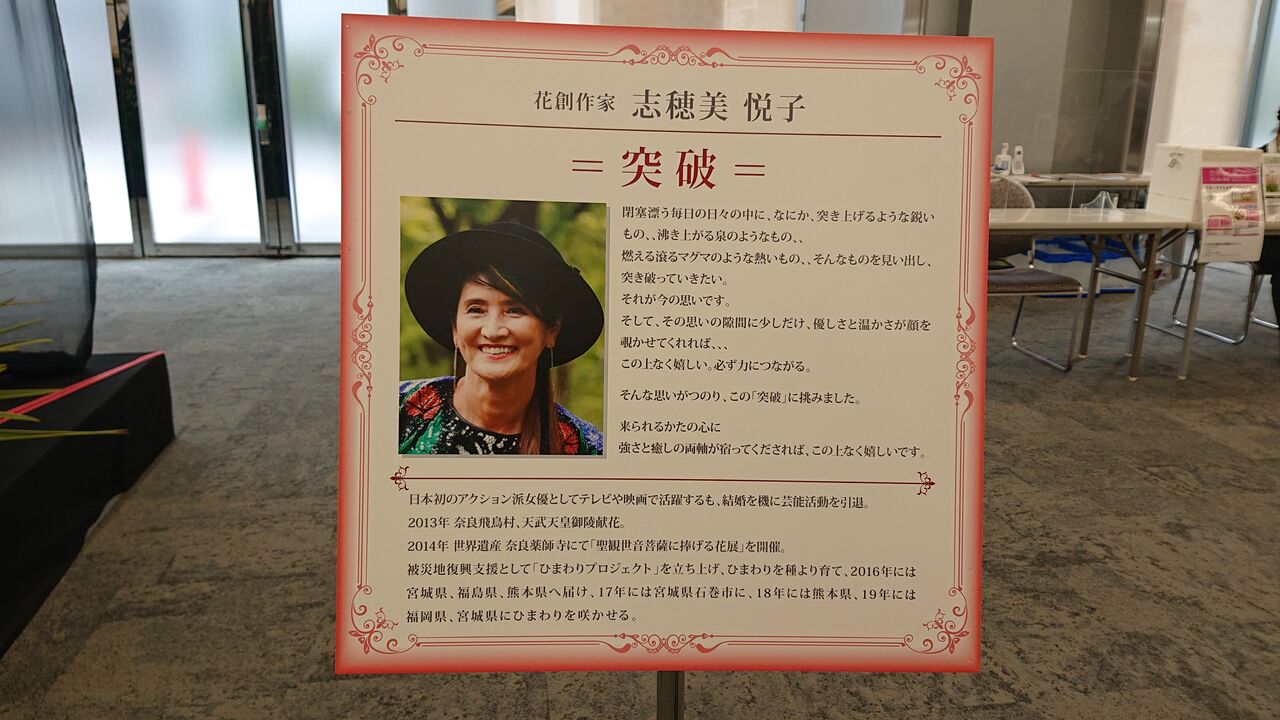 花創作家 志穂美 悦子
＝突破＝
閉塞漂う毎日の日々の中に、なにか、突き上げるような鋭い
もの、、沸き上がる泉のようなもの、、
燃える滾るマグマのような熱いもの、、そんなものを見い出し、
突き破っていきたい。
それが今の思いです。
そして、その思いの隙間に少しだけ、優しさと温かさが顔を
覗かせてくれれば、、、
この上なく嬉しい。必ず力につながる。
そんな思いがつのり、この「突破」に挑みました。
来られるかたの心に
強さと癒しの両軸が宿ってくだされば、この上なく嬉しいです。
日本初のアクション派女優としてテレビや映画で活躍するも、結婚を機に芸能活動を引退。
2013年 奈良飛鳥村、天武天皇御陵献花。
2014年 世界遺産 奈良薬師寺にて「聖観世音菩薩に捧げる花展」を開催。
被災地復興支援として「ひまわりプロジェクト」を立ち上げ、ひまわりを種より育て、2016年には
宮城県、福島県、熊本県へ届け、17年には宮城県石巻市に、18年には熊本県、19年には
福岡県、宮城県にひまわりを咲かせる。